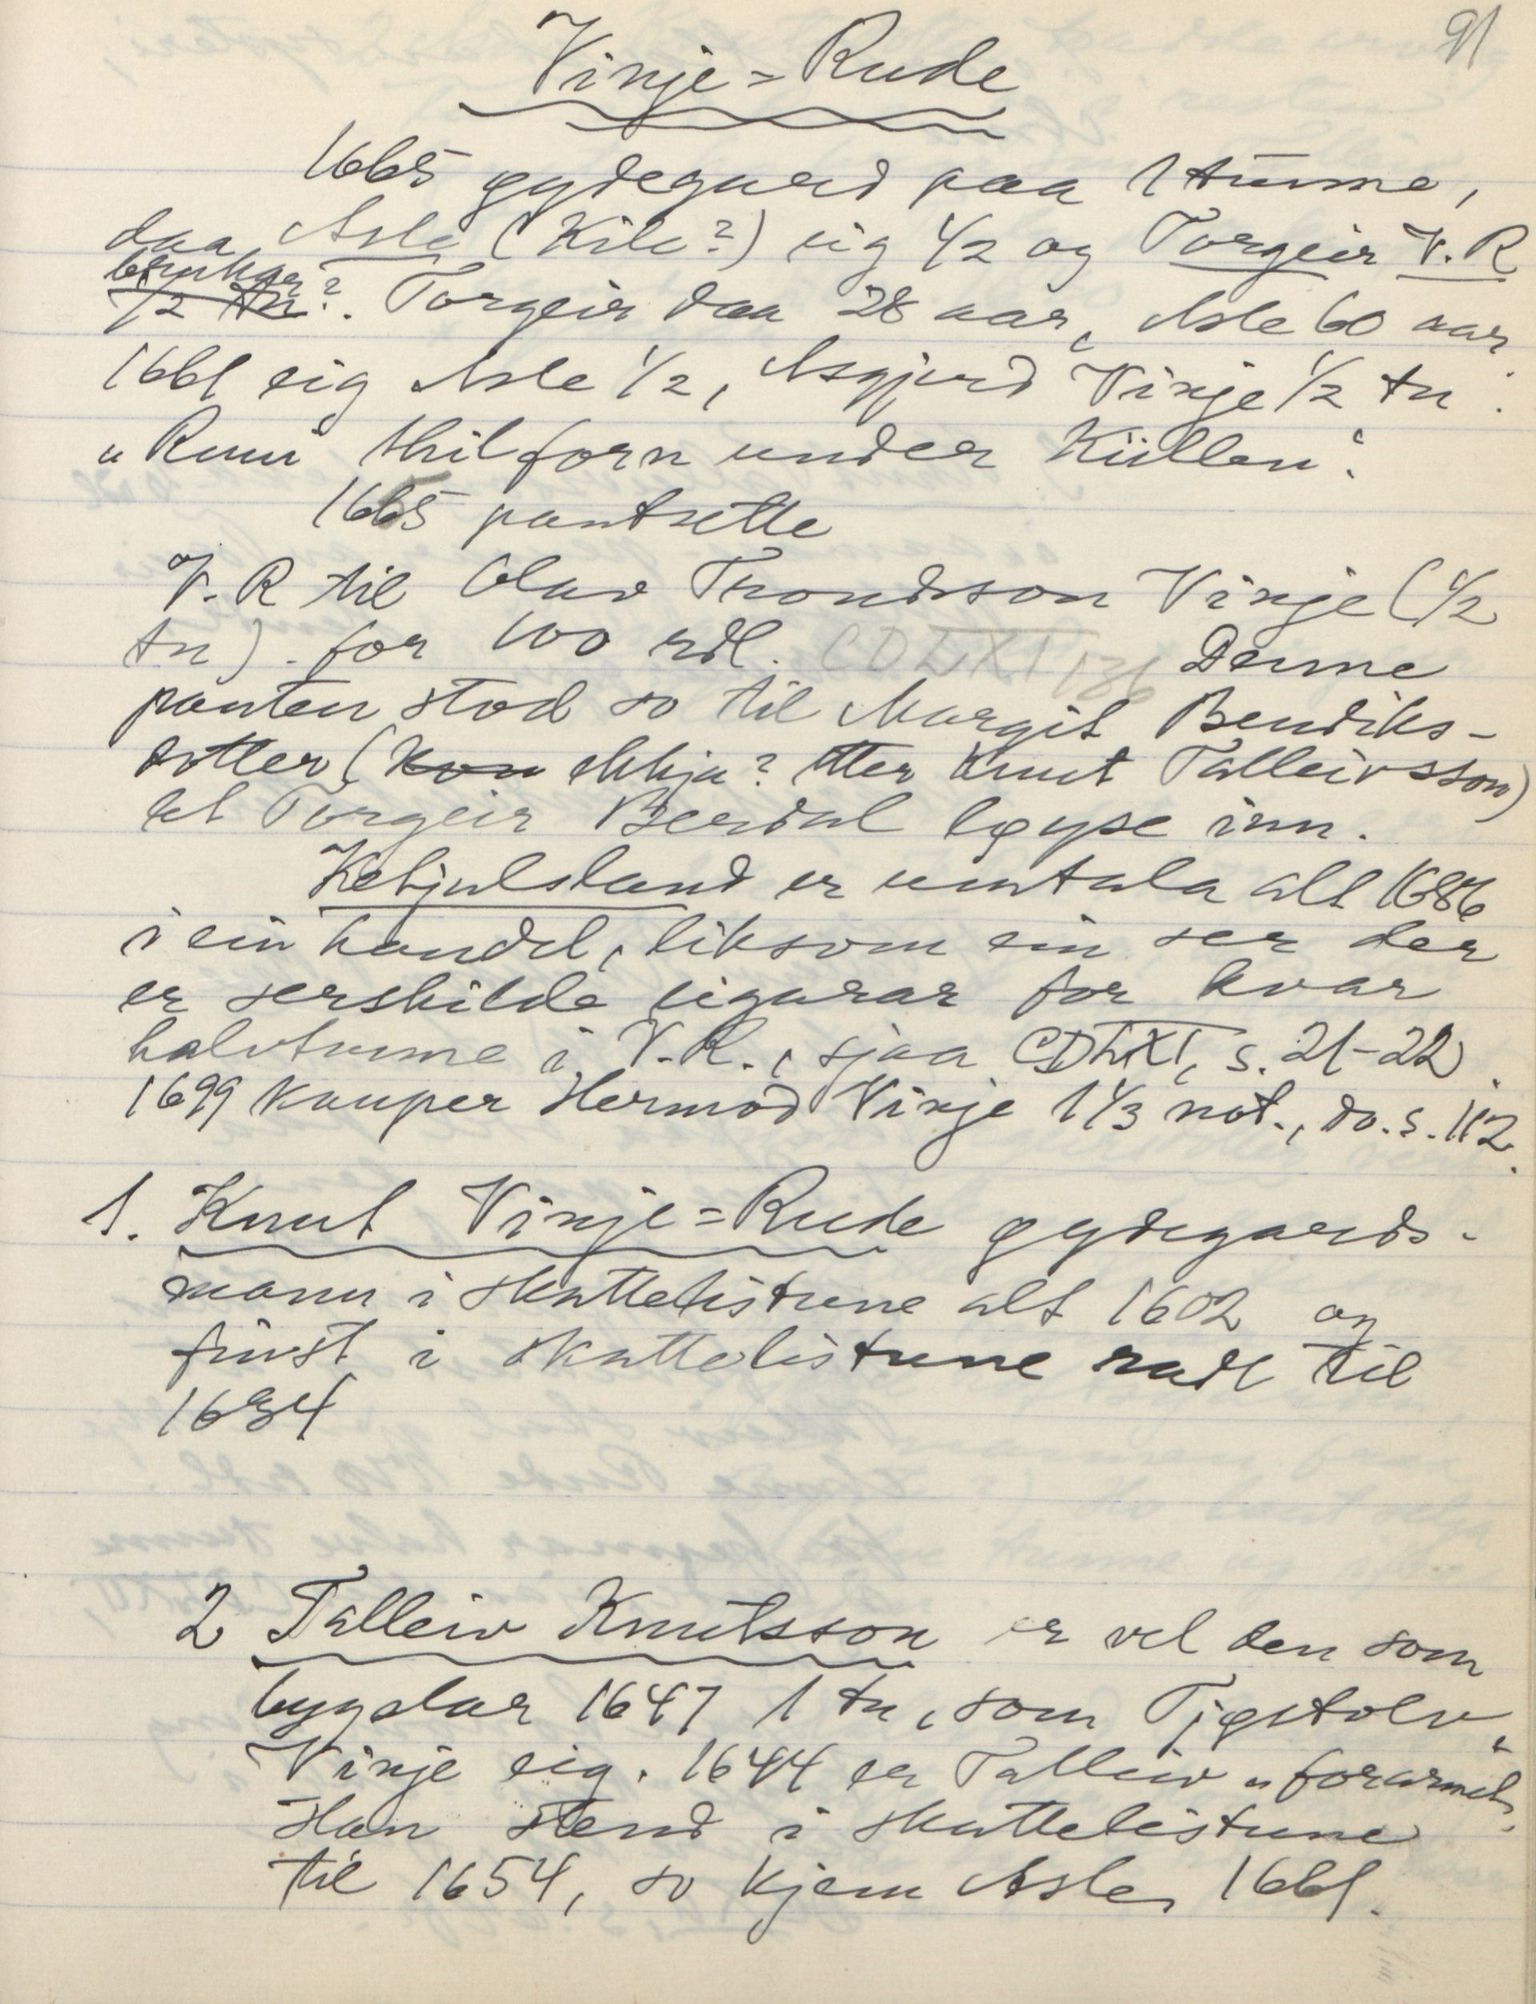 91
Vinje=Rude
1665 øydegard paa 1 tunne,
daa Asle (Kile?) eig 1/2 og Torgeir V.R
brukar?
1/2 tn?. Torgeir daa 28 aar, Asle 60 aar.
1661 eig Asle 1/2, Asgjerd Vinje 1/2 tn.
"Ruui thilforn under Küllen".
1665 pantsette
V.R til Olav Trondsson Vinje (1/2
tn). for 100 rdl. Denne
panten stod so til Margit Bendiks-
dotter (Kon ekkja? etter Knut Talleivsson)
let Torgeir Berdal løyse inn.
Ketjulsland er umtala alt 1686
i ein handel, liksom ein ser der
er serskilde eigarar for kvar
halvtunne i V.R., sjaa CDLXXI, s. 21-22.
1699 kauper Hermod Vinje 1 1/3 not., do. s. 112.
1. Knut Vinje=Rude øydegards-
mann i skattelistune alt 1602 og
finst i skattelistune radt til
1634
2 Talleiv Knutsson er vel den som
bygslar 1647 1 tn, som Tjøstolv
Vinje eig. 1644 er Talleiv "forarmet".
Han stend i skattelistune
til 1654, so kjem Asle, 1661.